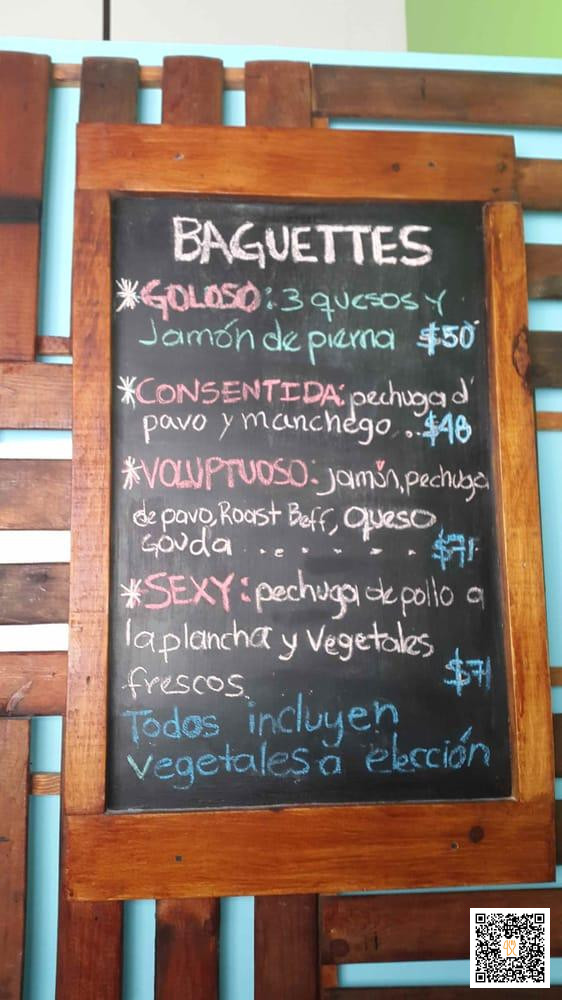 BAGUETTES
*GOLOSO: 3 quesos y
Jamón de pierna $50
*CONSENTIDA: pechuga d'
pavo y manchego .. $48
*VOLUPTUOSO: jamón, pechuga
de pavo, Roast Beff, queso
Gouda . . . . . . $71
*SEXY: pechuga de pollo a
la plancha y Vegetales
frescos $71
Todos incluyen
vegetales a elección